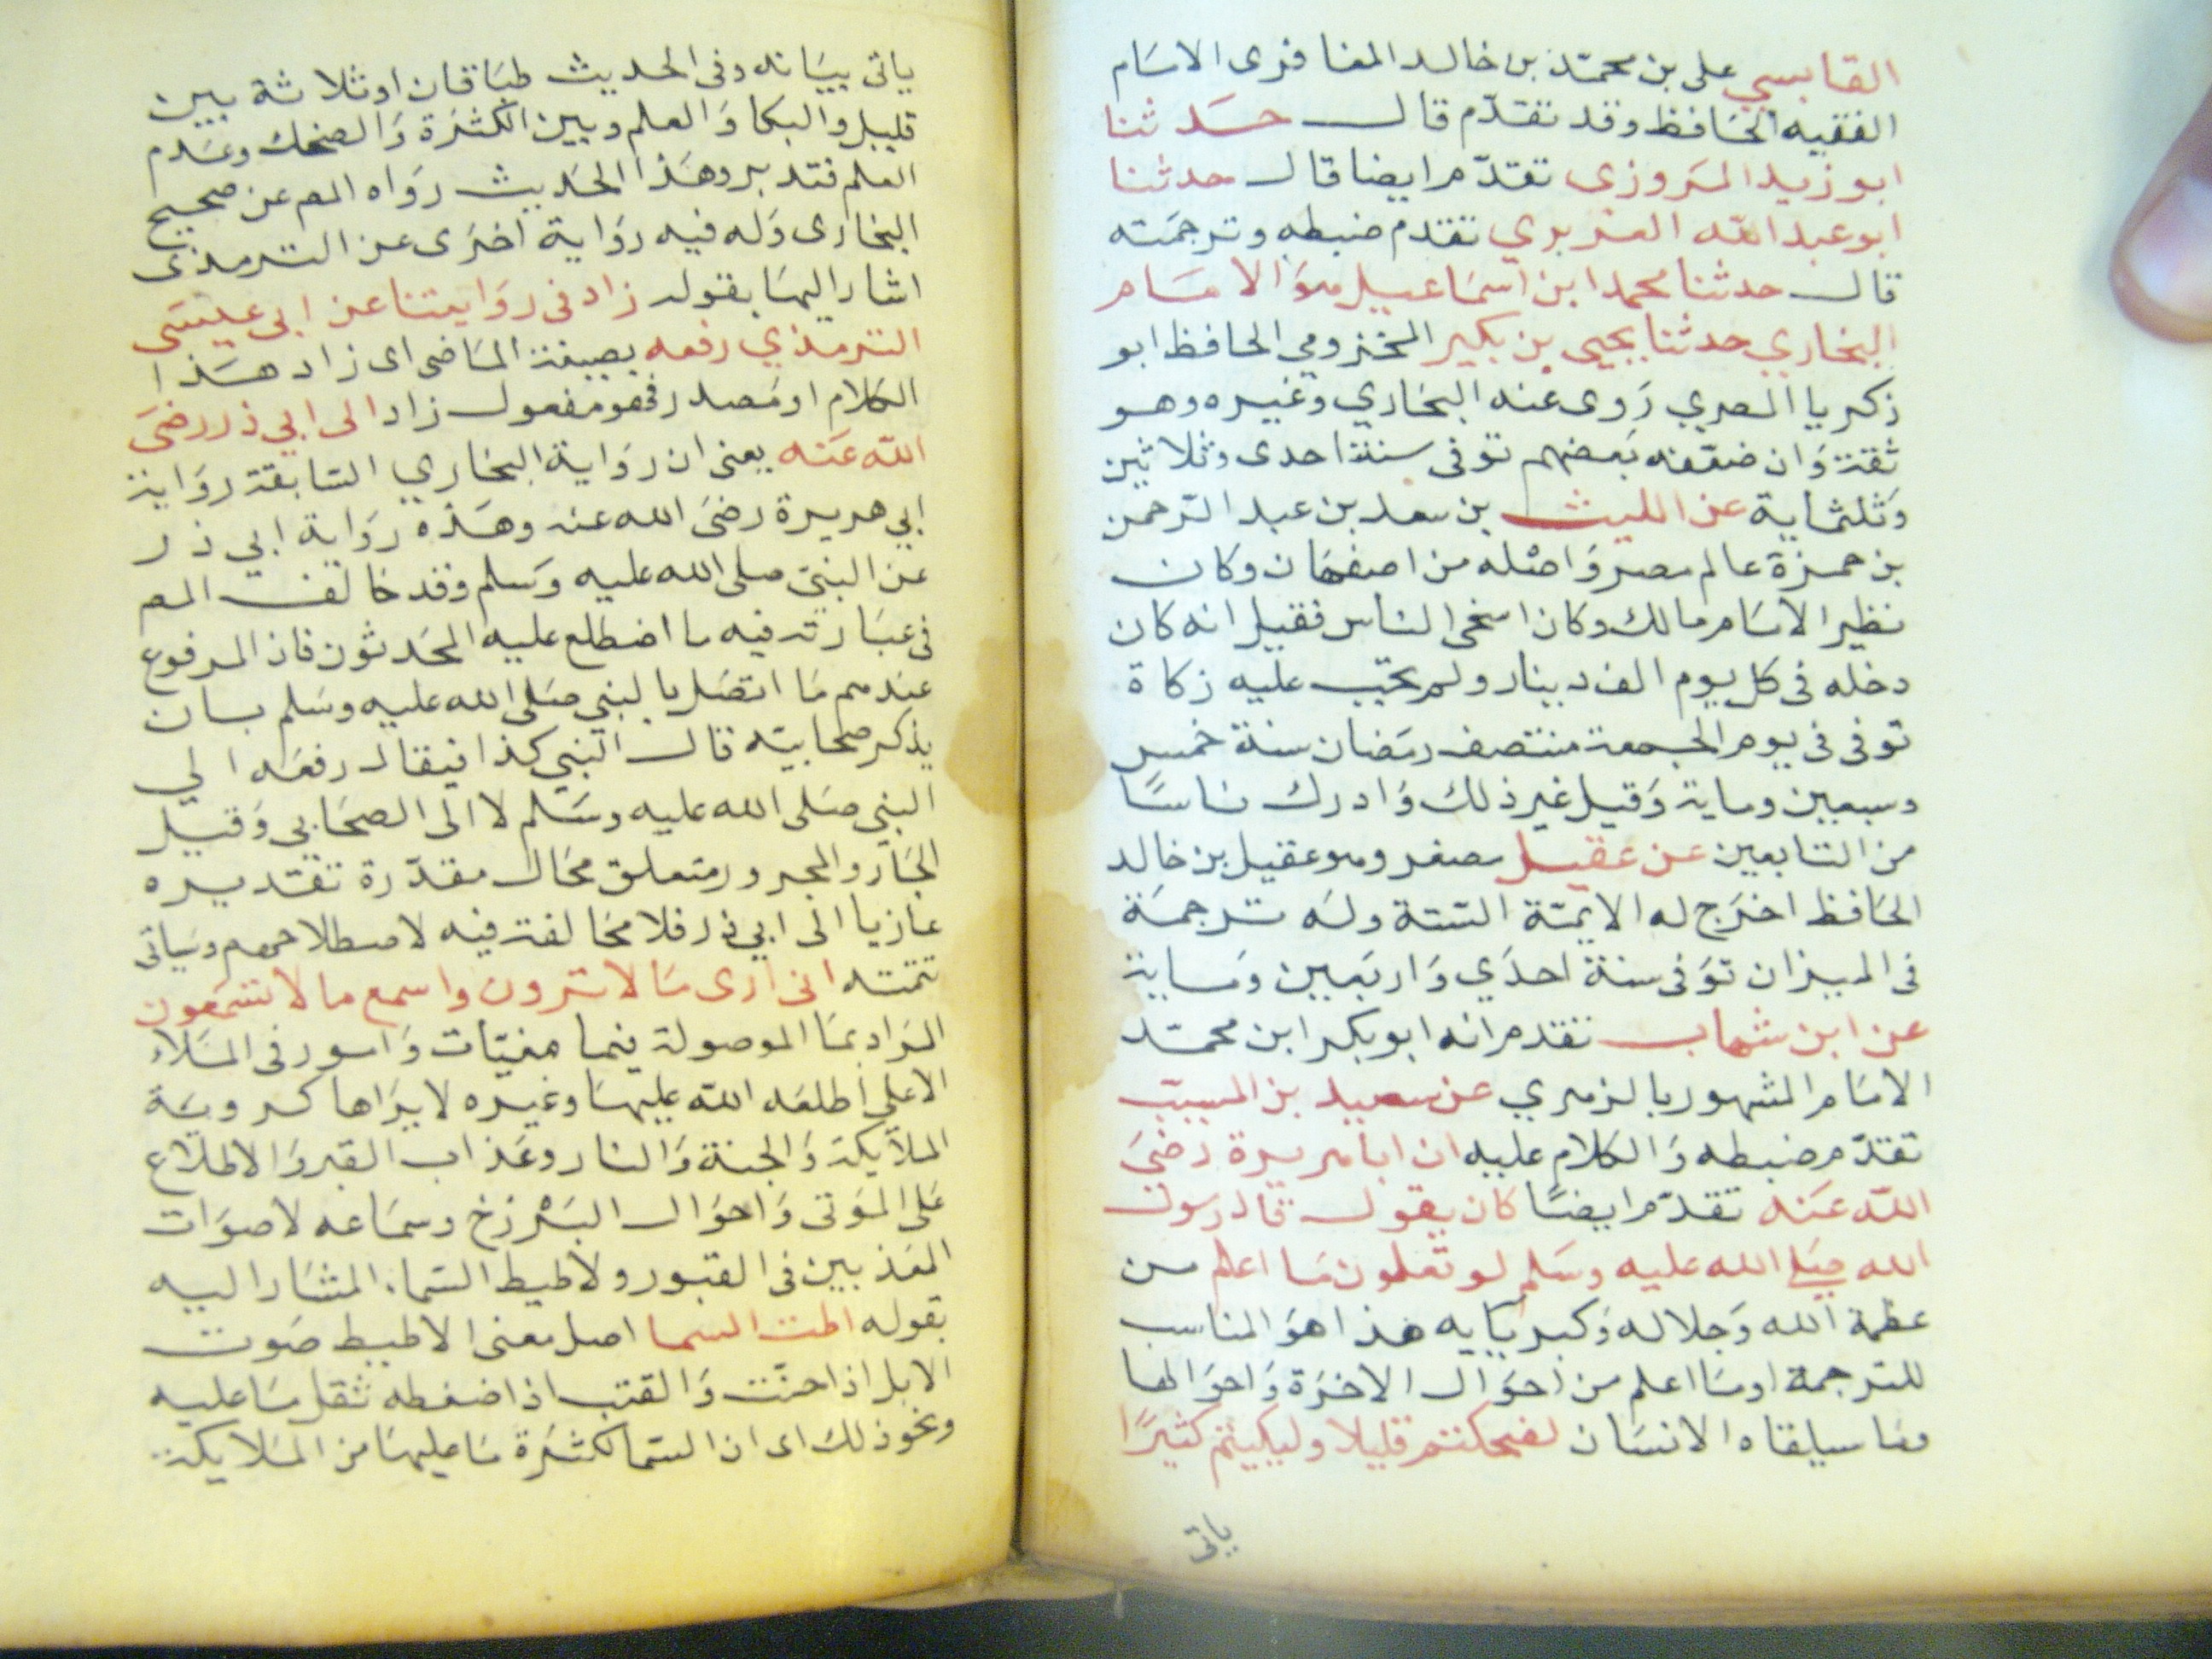 القابسي على بن محمد بن خالد المعافرى الامام
الفقيه الحافظ وقد تقدّم قال حدثنا
ابو زيد المروزى تقدّم ايضا قال حدثنا
ابو عبد الله الفربري تقدم ضبطه وترجمته
قال حدثنا محمد ابن اسماعيل هو الامام
البخاري حدثنا يحيى بن بكير المخزومي الحافظ ابو
زكريا المصري روى عنه البخاري وغيره وهو
ثقة وان ضعّفه بعضهم توفى سنة احدى وثلاثين
وثلثماية عن الليث بن سعد بن عبد الرّحمن
بن حمزة عالم مصر واصْله من اصفهان وكان
نظير الامام مالك وكان اسخى الناس فقيل انه كان
دخله فى كل يوم الف دينار ولم تجب عليه زكاة
توفى فى يوم الجمعة منتصف رمضان سنة خمس
وسبعين وماية وقيل غير ذلك وادرك ناسًا
من التابعين عن عقيل مصغر وهو عقيل بن خالد
الحافظ اخرج له الايمّة الستة وله ترجمة
فى الميزان توفى سنة احدي واربعين وماية
عن ابن شهاب تقدم انه ابو بكر ابن محمّد
الامام المشهور بالزهري عن سعيد بن المسيب
تقدّم ضبطه والكلام عليه ان ابا هريرة رضي
الله عنه تقدّم ايضًا كان يقول قال رسول
الله صلى الله عليه وسلم لو تعلمون ما اعلم من
عظمة الله وجلاله وكبريايه هذا هو المناسب
للترجمة او ما اعلم من احوال الاخرة واحوالها
وما سيلقاه الانسان لضحكتم قليلا ولبكيتم كثيرًا
ياتى
ياتى بيانه وفى الحديث طباقان او ثلاثة بين
قليل والبكا والعلم وبين الكثرة والضحك وعدم
العلم فتدبر وهذا الحديث رواه المص عن صحيح
البخارى وله فيه رواية اخرى عن الترمذى
اشار اليها بقوله زاد فى روايتنا عن ابى عيسى
الترمذي رفعه بصيغة الماضى اى زاد هذا
الكلام او مصدر فهو مفعول زاد الى ابي ذر رضي
الله عنه يعنى ان رواية البخاري السابقة رواية
ابي هريرة رضى الله عنه وهذه رواية ابي ذر
عن النبيّ صلى الله عليه وسلم وقد خالف المص
فى عبارته فيه ما اضطلع عليه المحدثون فان المرفوع
عندهم ما اتصل بالنبي صلى الله عليه وسلم بان
يذكر صحابيّه قال النبي كذا فيقال رفعه الي
النبي صلى الله عليه وسلم لا الى الصحابي وقيل
الجار والمجرور متعلق بحال مقدّرة تقديره
عازيا الى ابي ذر فلا مخالفة فيه لاصطلاحهم وسياتى
تتمته انى ارى ما لا ترون واسمع ما لا تسمعون
المراد بما الموصولة فيهما مغيّبات وامور فى الملاء
الاعلي اطلعه الله عليها وغيره لا يراها كروية
الملايكة والجنة والنار وعذاب القبر والاطلاع
على الموتى واحوال البرْزخ وسماعه لاصوات
المعذبين فى القبور ولاطيط السماء المشار اليه
بقوله اطت السما اصل معنى الاطيط صوت
الابل اذا حنّت والقتب اذا ضغطه ثقل ما عليه
ونحو ذلك اى ان السما لكثرة ما عليها من الملايكة